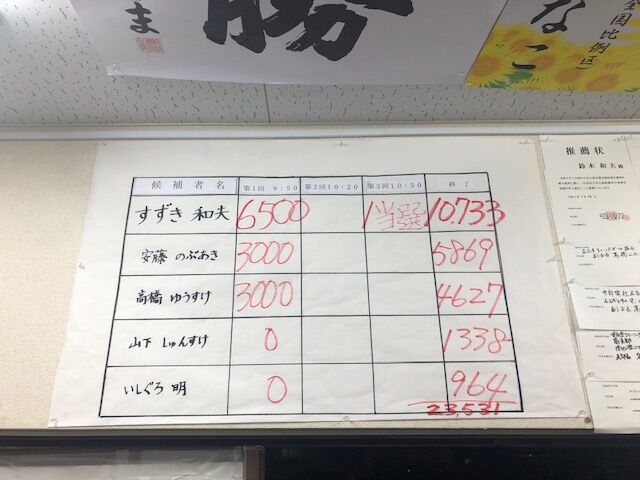 勝
ま
全国比例区
なこ
候補者名 第1回 9:50 第2回 10:20 第3回 10:50 終了
すずき 和夫 6500 当選 10,733
安藤 のぶあき 3000 5869
高橋 ゆうすけ 3000 4627
山下 しゅんすけ 0 1338
いしぐろ 明 0 964
23,531
推薦状
鈴木和夫殿